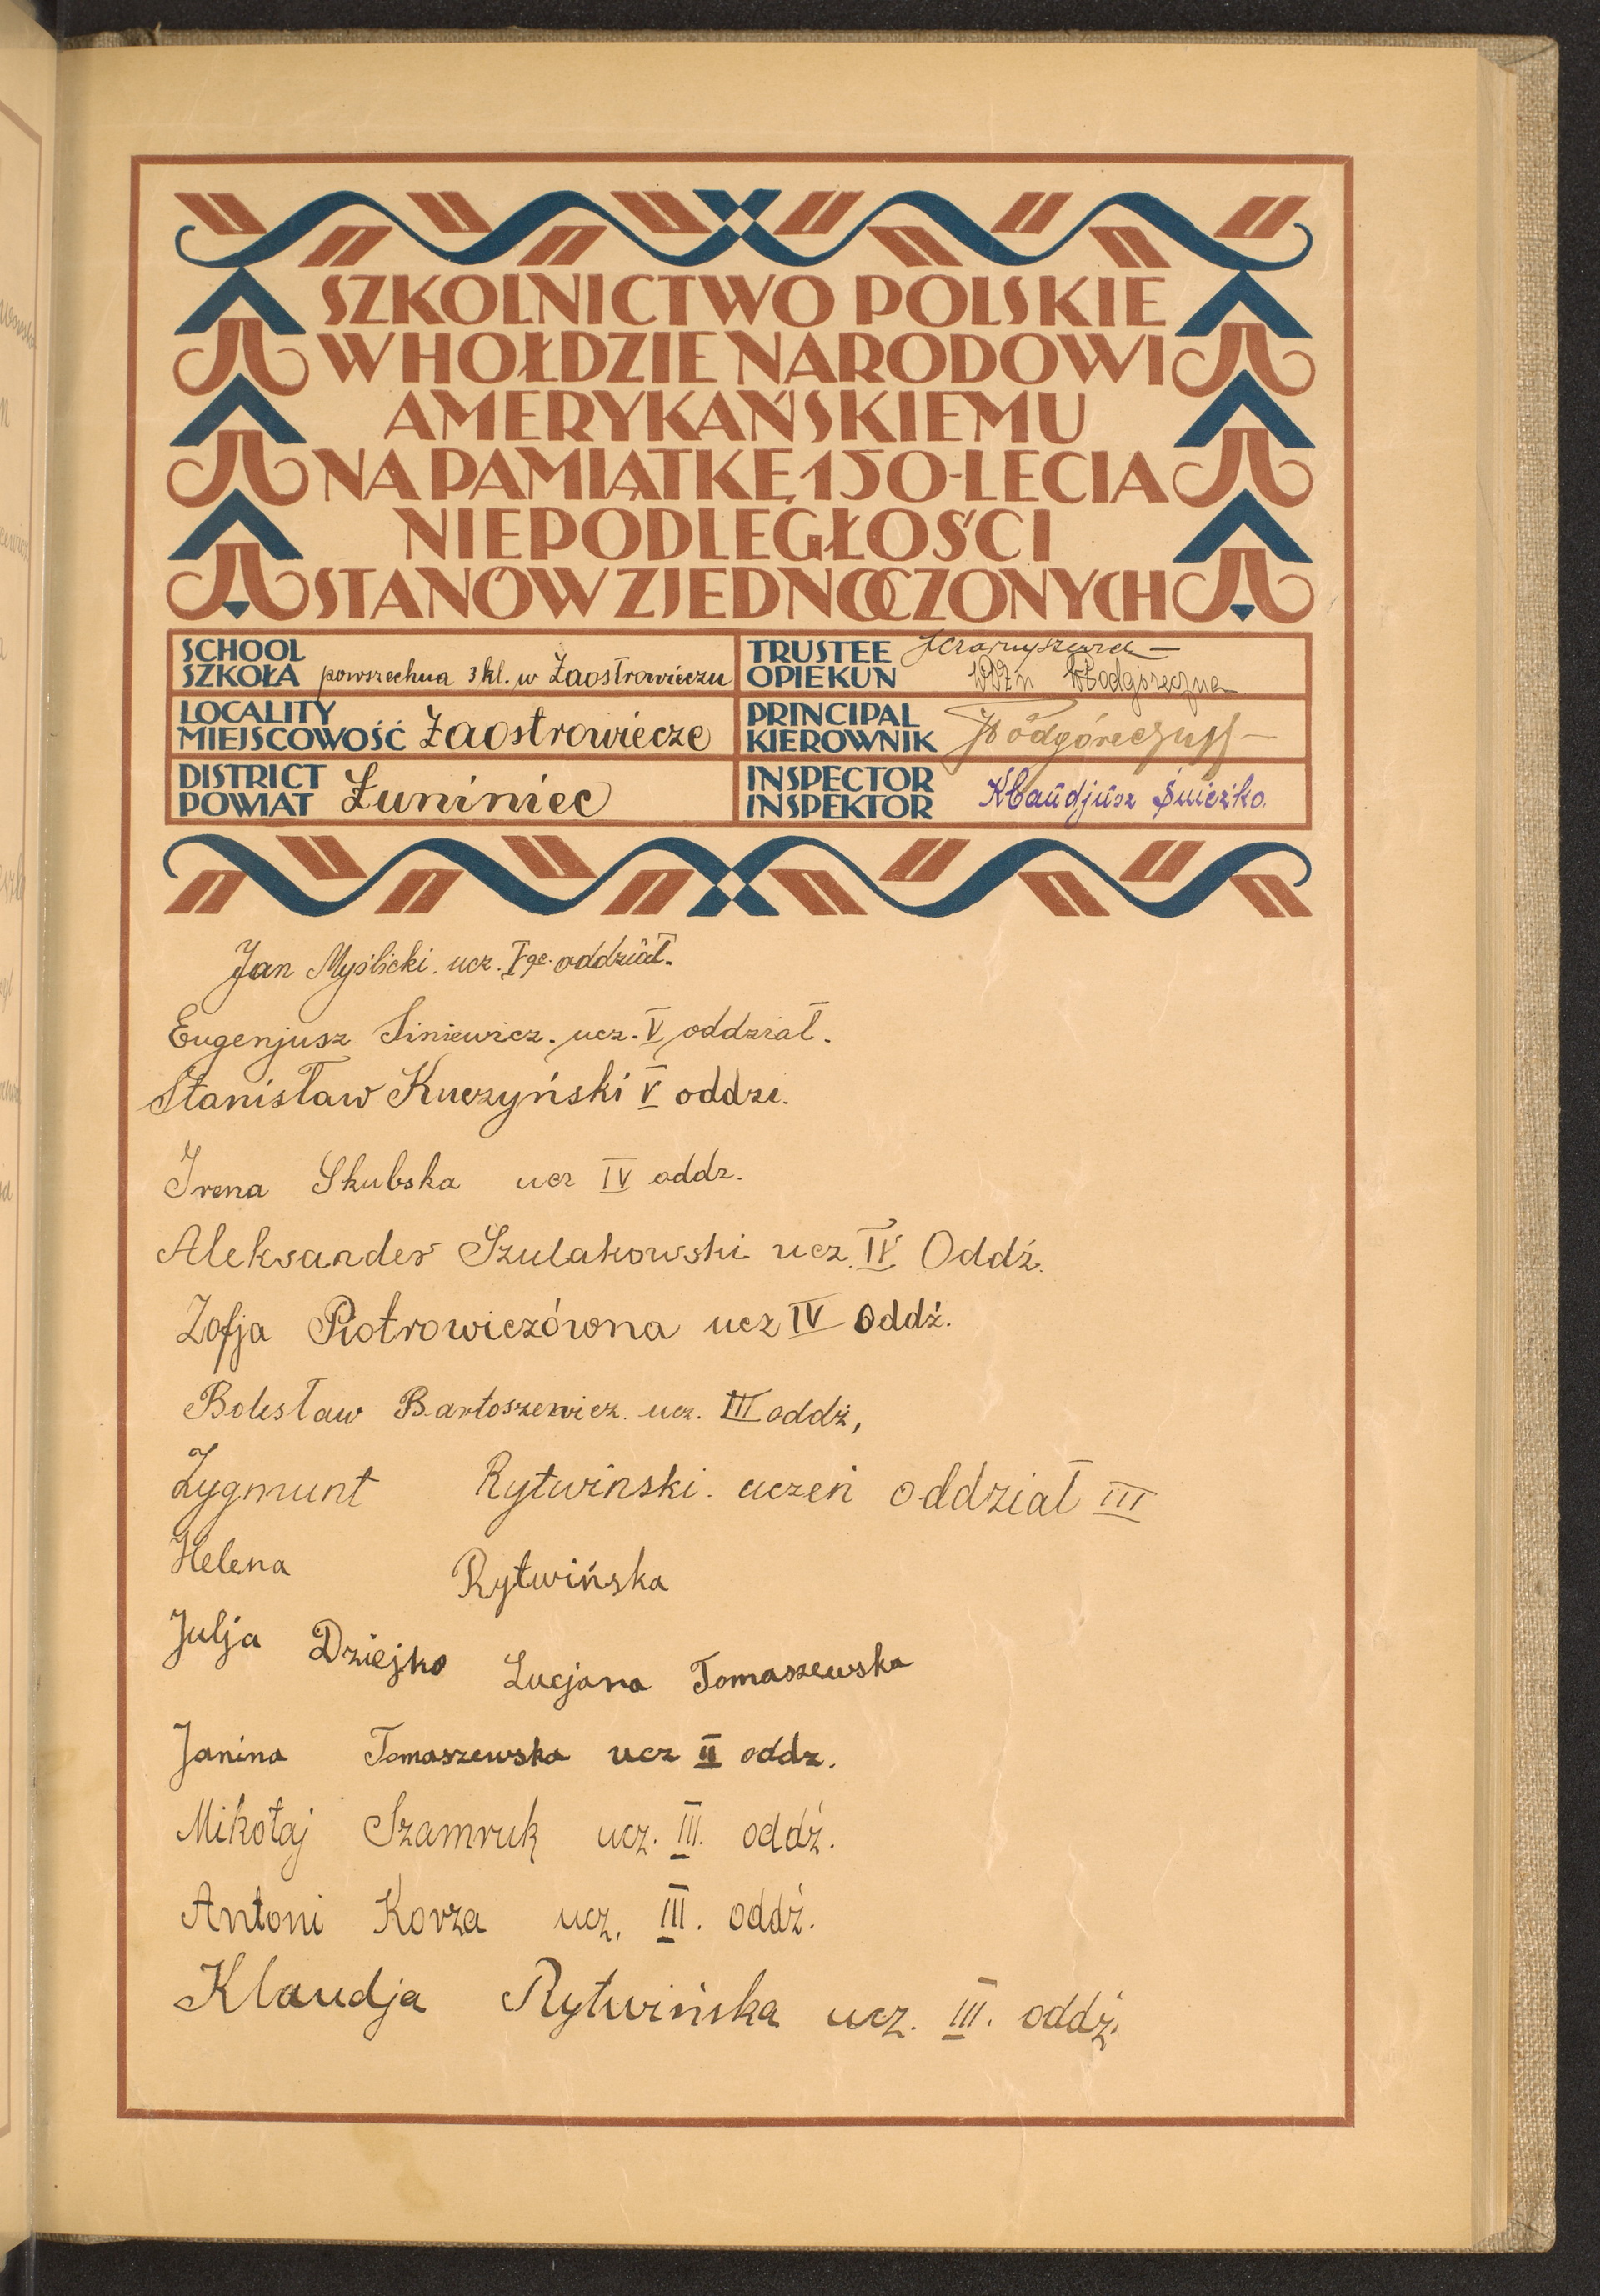 SZKOLNICTWO POLSKIE
W HOŁDZIE NARODOWI
AMERYKAŃSKIEMU
NA PAMIĄTKĘ 150-LECIA
NIEPODLEGŁOŚCI
STANÓW ZJEDNOCZONYCH
SCHOOL
SZKOŁA powszechna 3 kl. w Zaostrowieczu
TRUSTEE
OPIEKUN
LOCALITY
MIEJSCOWOŚĆ Zaostrowiecze
PRINCIPAL
KIEROWNIK
DISTRICT
POWIAT Łuniniec
INSPECTOR
INSPEKTOR Klaudjusz Śnieżko
Jan Myślicki. ucz. Vge. oddział.
Eugenjusz Siniewicz. ucz. V oddział.
Stanisław Kuczyński V oddz.
Irena Skubska ucz IV oddz.
Aleksander Szulakowski ucz. IV Oddź.
Zofja Piotrowiczówna ucz IV Oddź.
Bolesław Bartoszewicz. ucz. III oddź,
Zygmunt Rytwinski. uczeń oddział III
Helena Rytwińska
Julja Dziejko Lucjana Tomaszewska
Janina Tomaszewska ucz II oddz.
Mikołaj Szamruk ucz. III. oddź.
Antoni Korza ucz. III. oddź.
Klaudja Rytwińska ucz. III. oddź.